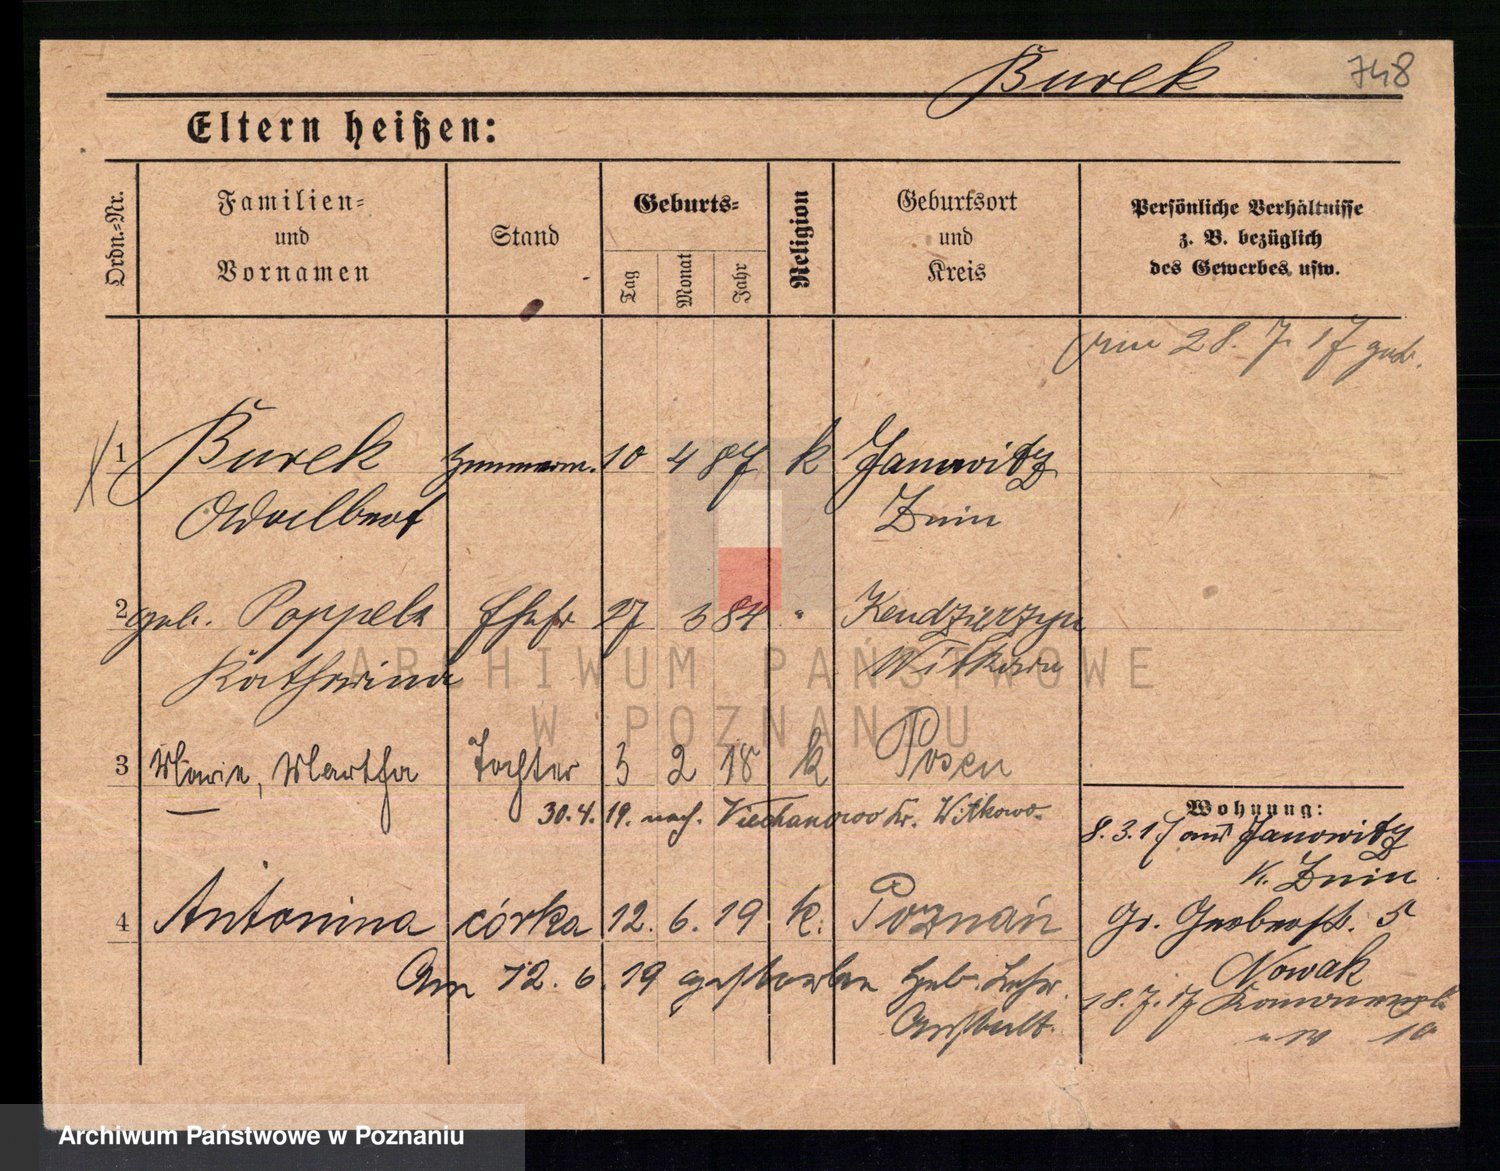 Burek 748
Eltern heißen:
Ordn.-Nr.
Familien-
und
Vornamen
Stand
Geburts-
Tag
Monat
Jahr
Religion
Geburtsort
und
Kreis
Persönliche Verhältnisse
z. B. bezüglich
des Gewerbes usw.
28. 7. 17
1 Burek Zimmerm. 10 4 87 k Janowitz
Adalbert Znin
2 geb. Poppels Ehefr 27 3 84 " Kendzierzyn
Katharina Witkowo
3 Marie, Martha Tochter 3 2 18 k Posen
30.4.19. nach. Viechanowo Kr. Witkowo.
Wohnung:
8.3.17 aus Janowitz
K. Znin
4 Antonina córka 12. 6. 19 k. Poznań
Gr. Gerberst. 5
Nowak
Am 12. 6. 19 gestorben Heb. Lehr.
Anstalt.
18.7.17
10
ARCHIWUM PAŃSTWOWE
W POZNANIU
Archiwum Państwowe w Poznaniu